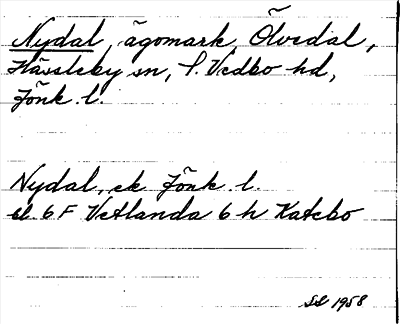 Nydal, ägomark, Ölvedal,
Hässleby sn, S. Vedbo hd,
Jönk. l.
Nydal, ek Jönk. l.
bl. 6 F Vetlanda 6 h Katebo
SS 1958